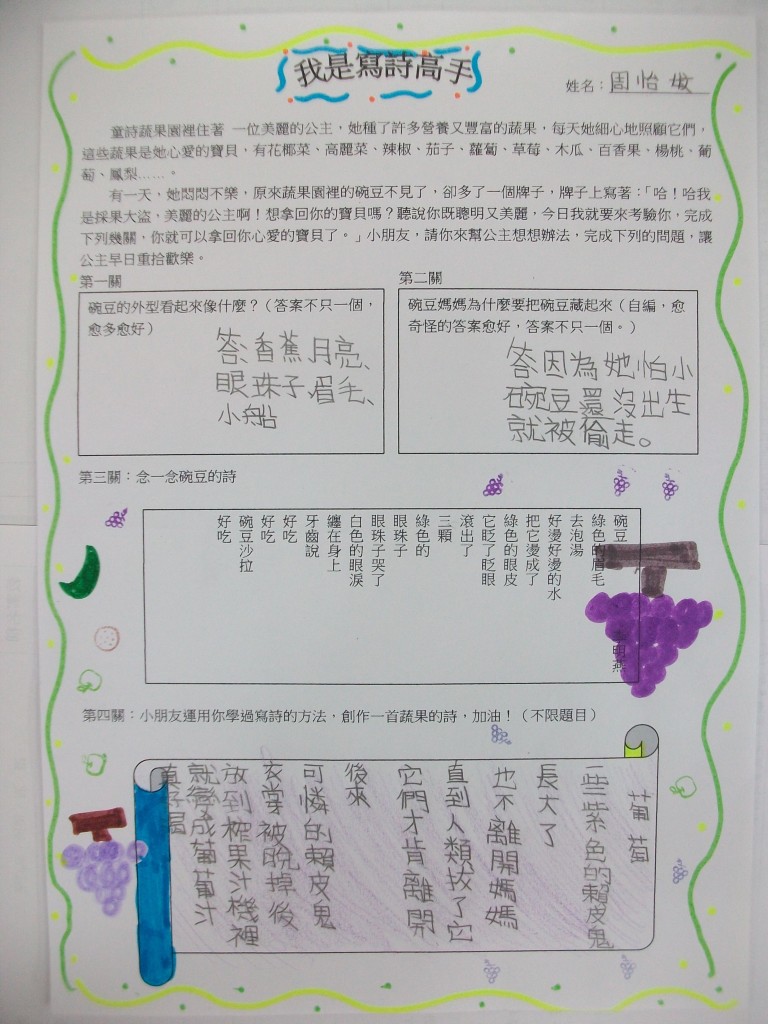 我是寫詩高手
姓名：周怡妏
童詩蔬果園裡住著 一位美麗的公主，她種了許多營養又豐富的蔬果，每天她細心地照顧它們，
這些蔬果是她心愛的寶貝，有花椰菜、高麗菜、辣椒、茄子、蘿蔔、草莓、木瓜、百香果、楊桃、葡
萄、鳳梨……。
有一天，她悶悶不樂，原來蔬果園裡的碗豆不見了，卻多了一個牌子，牌子上寫著：「哈！哈我
是採果大盜，美麗的公主啊！想拿回你的寶貝嗎？聽說你既聰明又美麗，今日我就要來考驗你，完成
下列幾關，你就可以拿回你心愛的寶貝了。」小朋友，請你來幫公主想想辦法，完成下列的問題，讓
公主早日重拾歡樂。
第一關
碗豆的外型看起來像什麼？（答案不只一個，
愈多愈好）
答:香蕉、月亮、
眼珠子、眉毛、
小船
第二關
碗豆媽媽為什麼要把碗豆藏起來（自編，愈
奇怪的答案愈好，答案不只一個。）
答:因為她怕小
碗豆還沒出生
就被偷走。
第三關：念一念碗豆的詩
碗豆
綠色的眉毛
去泡湯
好燙好燙的水
把它燙成了
綠色的眼皮
它眨了眨眼
滾出了
三顆
綠色的
眼珠子
眼珠子哭了
白色的眼淚
纏在身上
牙齒說
好吃
好吃
碗豆沙拉
好吃
明燕
第四關：小朋友運用你學過寫詩的方法，創作一首蔬果的詩，加油！（不限題目）
葡萄
一些紫色的賴皮鬼
長大了
也不離開媽媽
直到人類拔了它
它們才肯離開
後來
可憐的賴皮鬼
衣裳被脫掉後
放到榨果汁機裡
就變成葡萄汁
真好喝